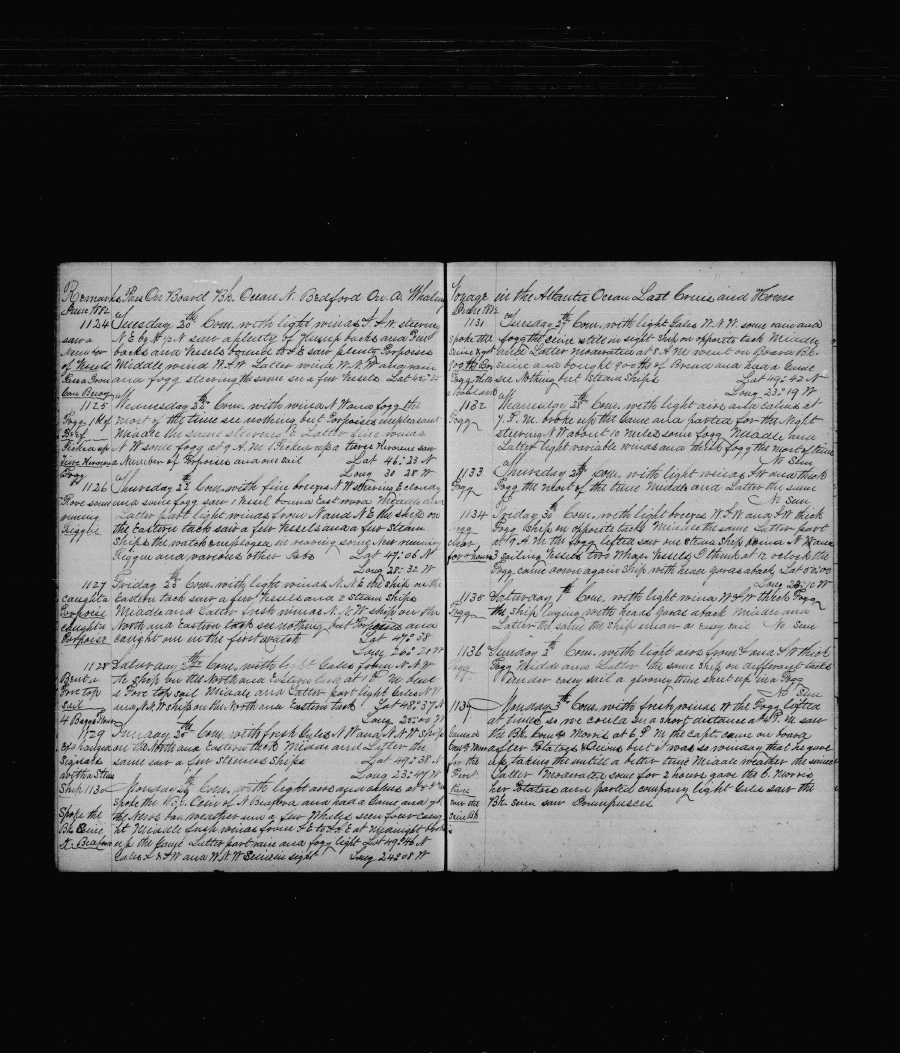 Remarks Pass On Board Bk. Ocean N. Bedford On A. Whaling
June 1882
1124 Tuesday 20th Com. with light winds S W steering
saw a N E by N ½ N saw a plenty of Humpbacks and Fin
Number backs and Vessels bound to saw plenty Porpoises
of Vessels Middle wind W S W Latter wind W.N.W and rain
and fogg steering the same saw a few Vessels Lat 45
Can Buoy
1125 Wednesday Com. with wind N W and fogg the
Fogg most of the time see nothing but Porpoises unpleasant
Middle the same steering E Latter fine winds
Picked up N W some fogg at 9 A.M Picked up a tierce Kerosene saw
tierce Kerosene a Number of Porpoise and one sail Lat 46° 23 N
Fogg Long 30 28 W
1126 Thursday 22th Com. with fine breezes N W steering E
Rove some and some fogg saw 1 Vessel bound East ward Middle and
running Latter part light winds from N and N E the ship on
Riggin the Eastern tack saw a few Vessels and a few Steam
Ships the watch employed in reaving some New running
Riggin and various other Jobs Lat 47° 06 N
Long 28° 32 W
1127 Friday 23th Com. with light winds N.N.E the ship on the
caught a Eastern tack saw a few Vessels and 2 Steam Ships
Porpoise Middle and Latter fresh winds N.N.W ship on the
caught a North and Eastern tack see nothing but Porpoises and
Porpoise caught one in the first watch Lat 47° 38
Long 26° 20 W
1128 Saturday Com. with light Gales from N N W
Bent a the ship on the North and Eastern tack at 1 P M bent
Fore top a Fore top sail Middle and Latter part light Gales N W
sail and N.N.W ship on the North and Eastern tack Lat 48° 37 N
Long 25° 00 W
1129 Sunday 25th Com. with fresh Gales N W and N.N.W Ship
on the North and Eastern tack Middle and Latter the
Signals same saw a few steamers Ships Lat 49° 38 N
with a Steam Long 23° 47 W
Ship 1130 Monday Com. with light airs and calms at
spoke the Bk. Seine of N Bedford and had a Game and got
Spoke the the News has weather saw a few Whales
Bk Seine Middle fresh winds from S E to at midnight
N. Bedford up the Game Latter part rain and fogg light Lat 49° 46 N
Gales S S W and W N W Seine in sight Long 24° 08 W
Voyage in the Atlantic Ocean Last Cruis and Home
June 1882
1131 Tuesday 27th Com. with light Gales W.N.W. some rain and
spoke the fogg the Seine still in sight Ship on opposite tack Middle
Seine and Latter Moderated at 8 A.M went on board Bk.
Seine and bought 900 lbs of Bread and had a Game
see Nothing but 1 Steam Ships Lat 49° 42 N
Long 23° 19 W
1132 Wednesday 28th Com. with light airs and calms at
Fogg 7 P.M. broke up the Game and parted for the Night
steering N W about 10 miles some fogg Middle and
Latter light variable winds and thick fogg the most of time
No Sun
1133 Thursday 29th Com. with light winds S W and thick
Fogg Fogg the most of the time Middle and Latter the same
No Sun
1134 Friday 30th Com. with light breezes W S W and S W thick
Fogg Fogg Ship on opposite tacks Middle the same Latter part
clear at 9 A.M the fogg lifted saw one Steam Ship
for 4 hours 3 sailing Vessels two Whale Vessels I think at 12 o'clock the
Fogg came down again Ship with head yards aback Lat 50.00
Long 22° 10 W
1135 Saturday Com. with light wind W S W thick Fogg
Fogg the Ship laying with heads yards aback Middle and
Latter the same the ship under a easy sail No Sun
1136 Sunday 2th Com. with light airs from S and S W thick
Fogg Fogg Middle and Latter the same Ship on different tacks
under easy sail a gloomy time shut up in a Fogg
No Sun
1137 Monday 3th Com. with fresh winds W the Fogg lifted
at times so we could see a short distance at 4 P.M saw
the Bk. Com. Morris at 6 P M the Capt. came on board
after Potatoes & Onions but it was so windy that he gave
for the up taking them until a better time Middle weather the same
First Latter Moderated some for 2 hours gave the C. Morris
time her Potatoes and parted company light Gales saw the
saw the Bk. Seine saw Grampuses
Seine Bk